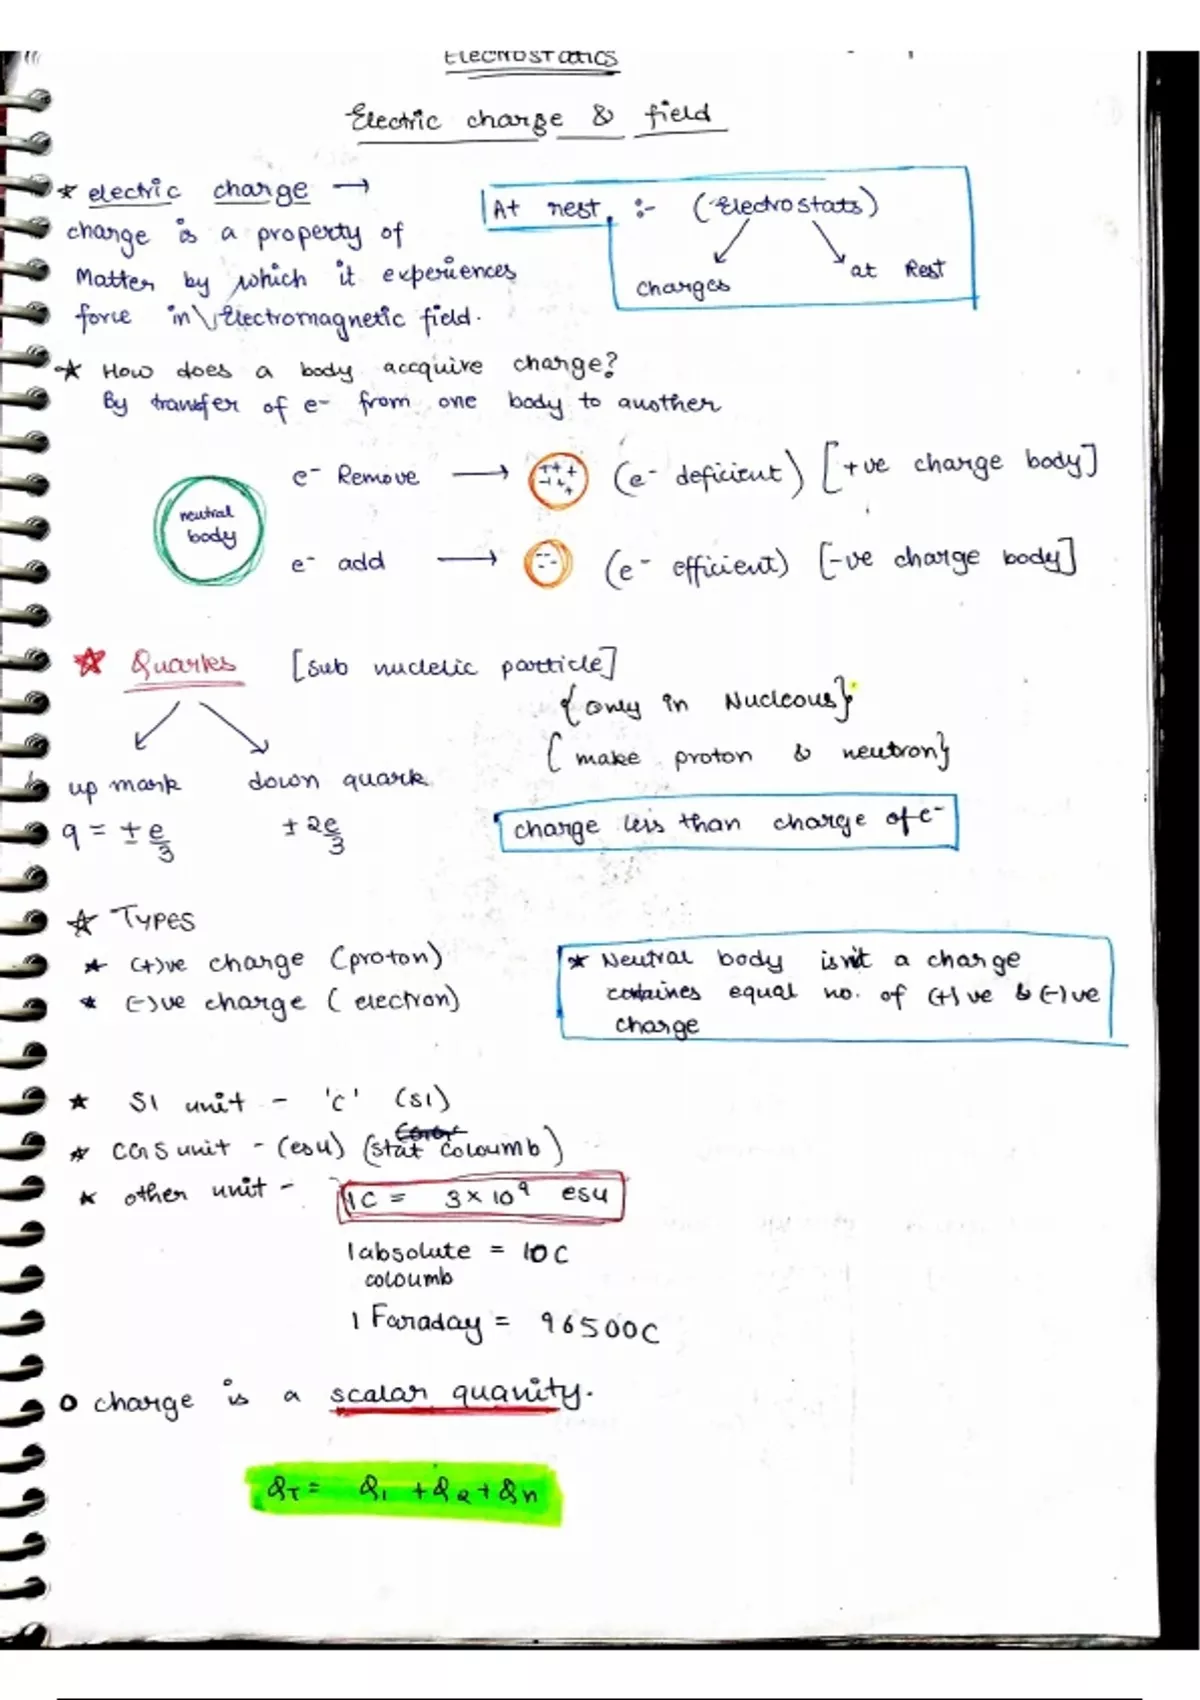 Electrostatics
Electric charge & field
* electric charge →
charge is a property of
Matter by which it experiences
force in \ Electromagnetic field.
At rest :- (Electrostats)
charges
at Rest
* How does a body accquire charge?
By transfer of e- from one body to another
neutral
body
e- Remove → +++ -+++ (e- deficient) [+ve charge body]
e- add → -- -- (e- efficient) [-ve charge body]
* Quarks [sub nuclelic particle]
{only in Nucleous}
{ make proton & neutron}
up mark
down quark
q = ± e/3
± 2e/3
charge less than charge of e-
* TYPES
* (+)ve charge (proton)
* (-)ve charge (electron)
* Neutral body isn't a charge
containes equal no. of (+)ve & (-)ve
charge
* SI unit - 'C' (SI)
* CGS unit - (esu) (stat coloumb)
* other unit - 1C = 3×10⁹ esu
1 absolute = 10C
coloumb
1 Faraday = 96500C
o charge is a scalar quanity.
QT = Q1 + Q2 + Qn